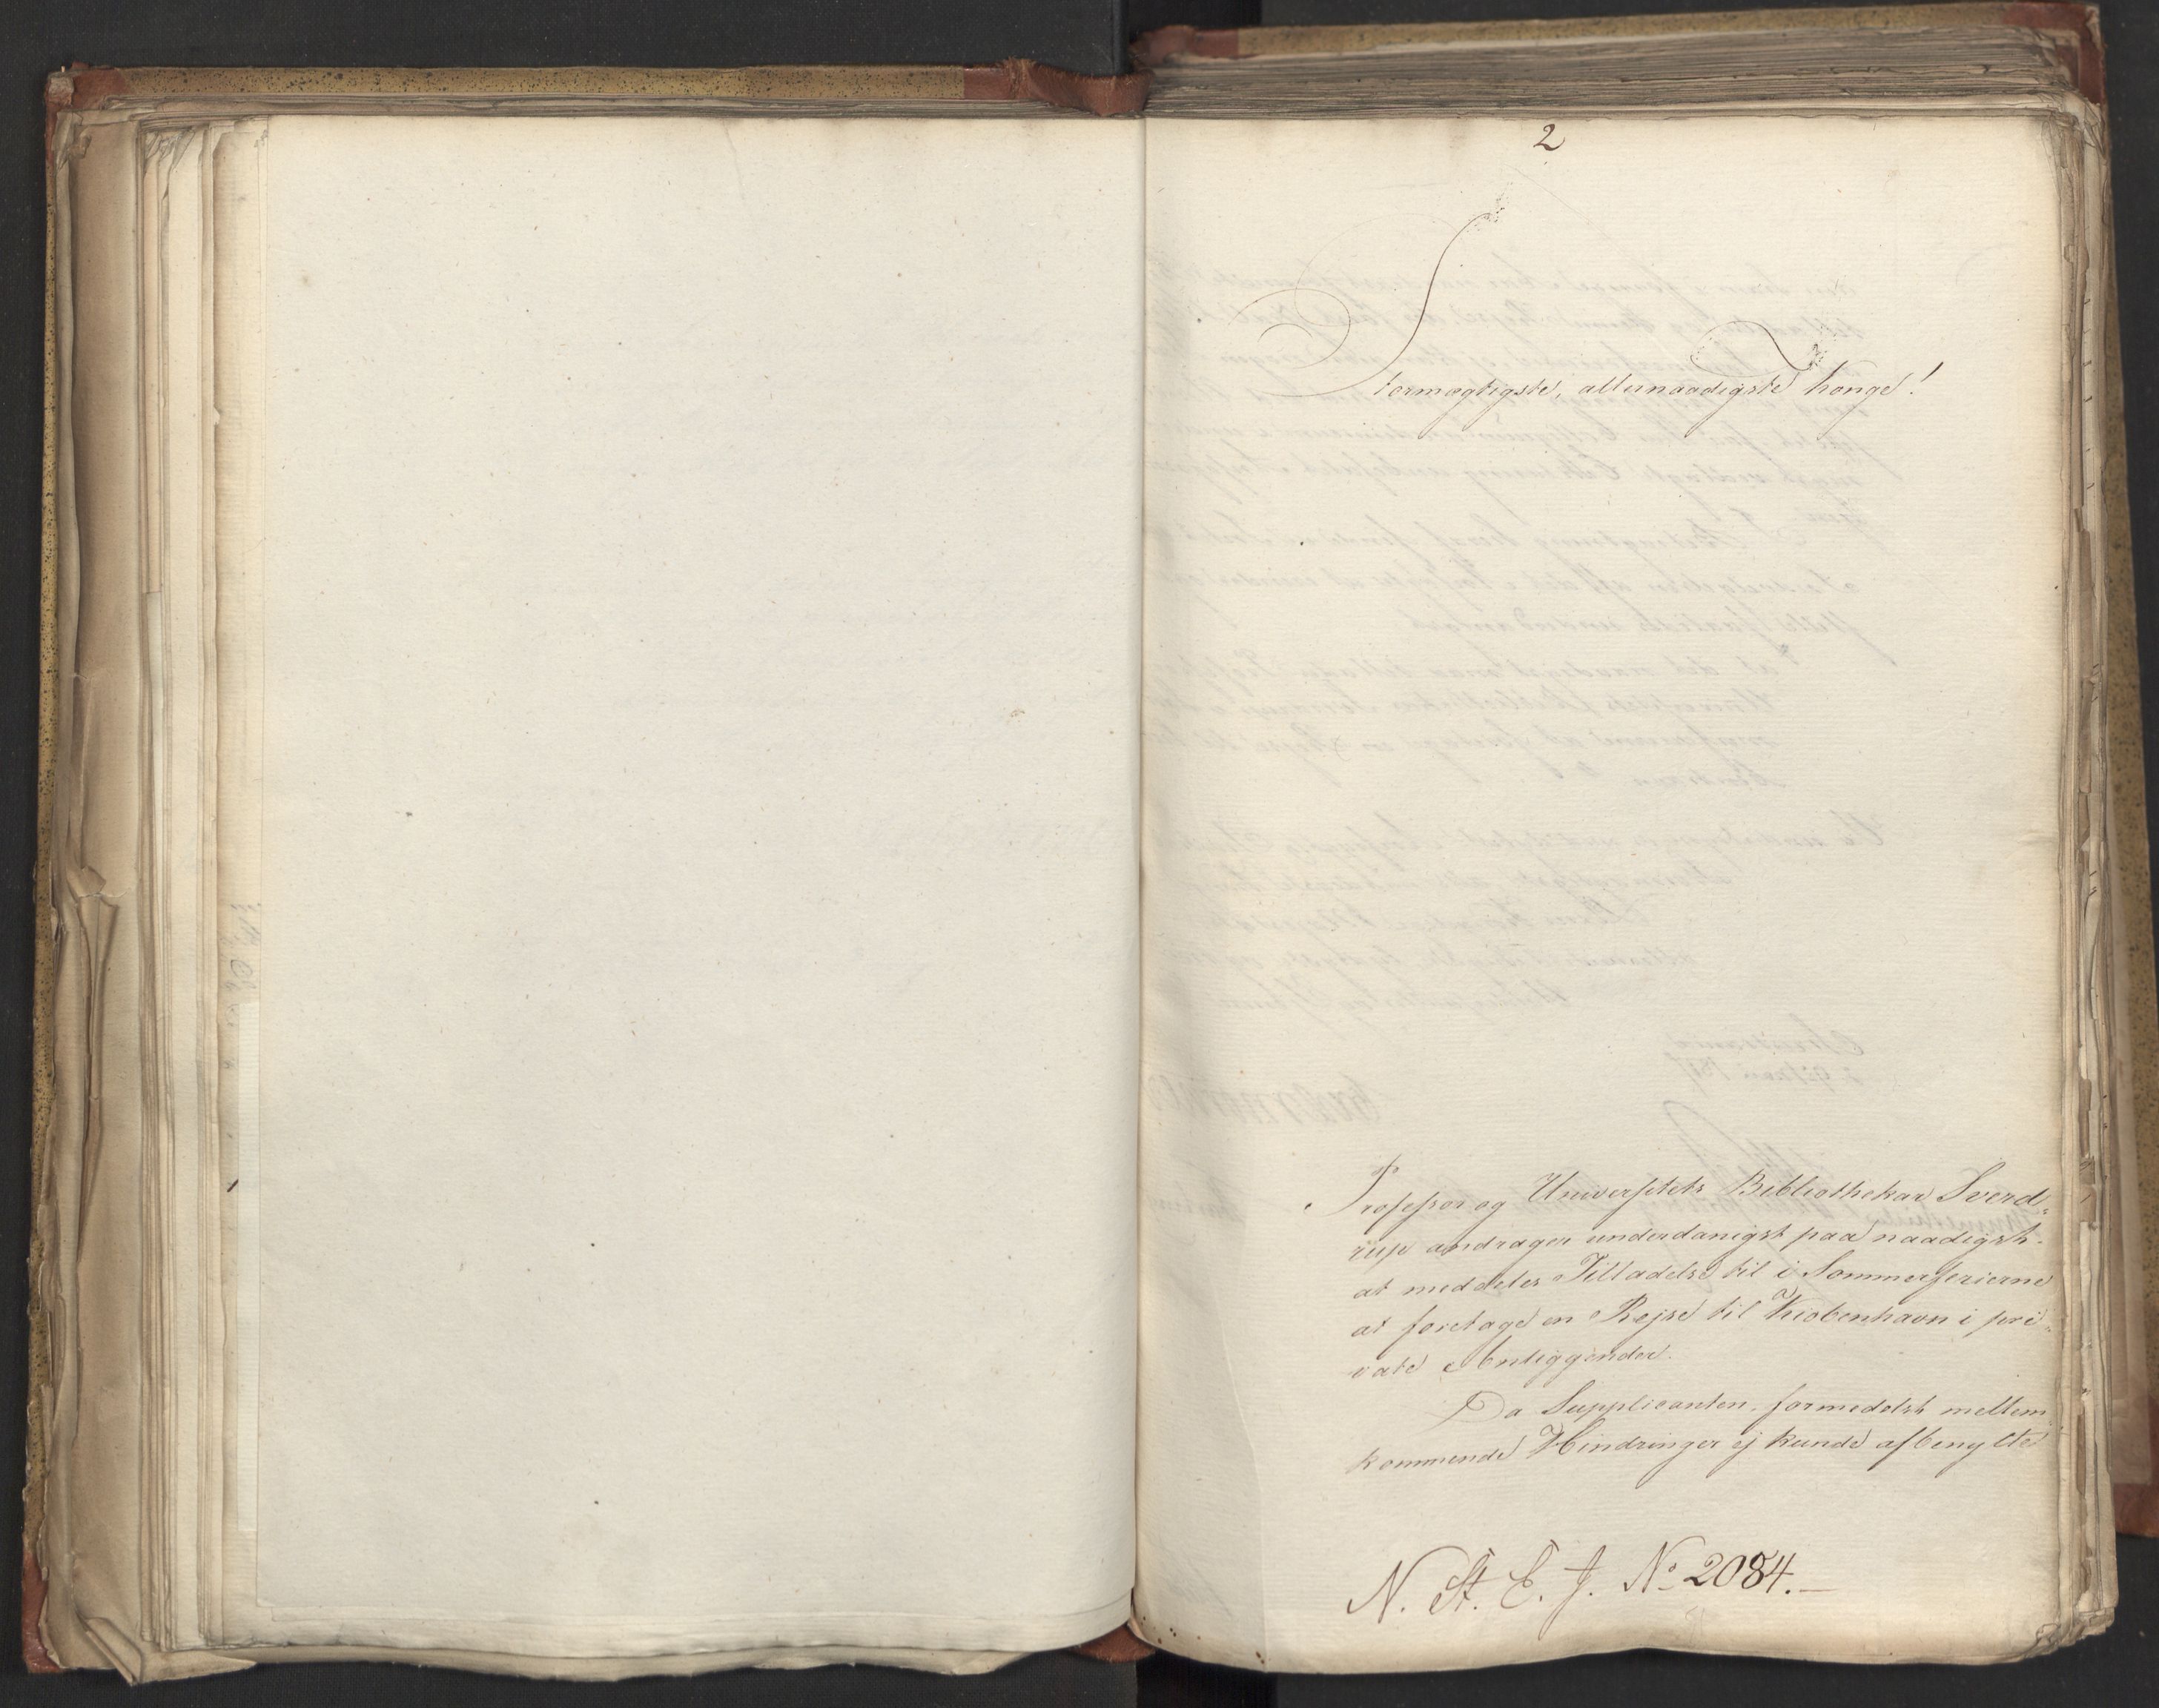 2
Stormægtigste, allernaadigste Konge!
Professor og Universitets Bibliothekar Sverd-
rup andrager underdanigst paa naadigst
at meddeles Tilladelse til i Sommerferierne
at foretage en Rejse til Kiøbenhavn i pri-
vate Anliggender.
Da Supplicanten, formedelst mellem
kommende Hindringer ej kunde afbenytte
N. St. E. J. No 2084.